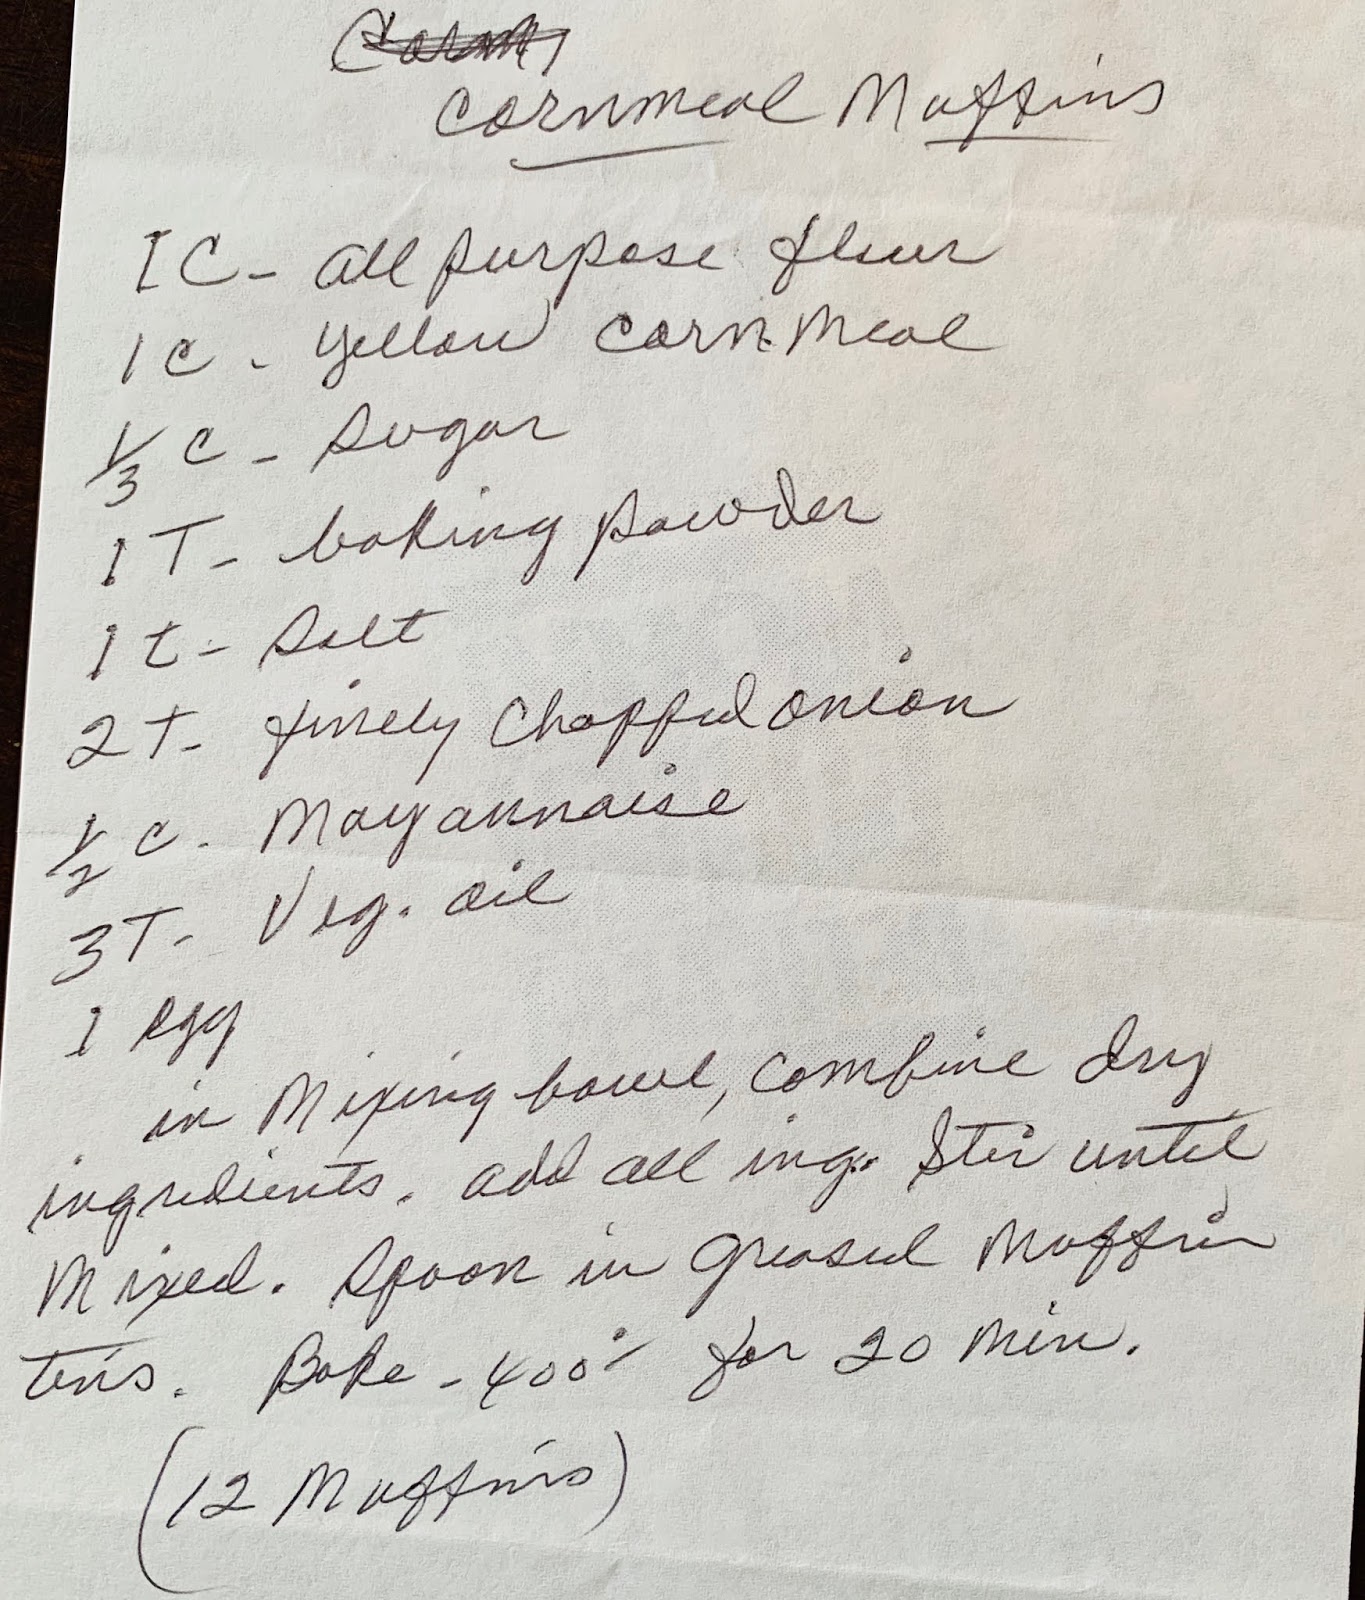 Cornmeal Muffins
1 C - all purpose flour
1 c - yellow corn meal
1/3 c - Sugar
1 T - baking powder
1 t - Salt
2 T - finely Chopped onion
1/2 c - Mayannaise
3 T - Veg. oil
1 egg
in Mixing bowl, combine dry
ingredients. add all ing. Stir until
Mixed. Spoon in greased Muffin
tins. Bake - 400° for 20 min.
(12 Muffins)